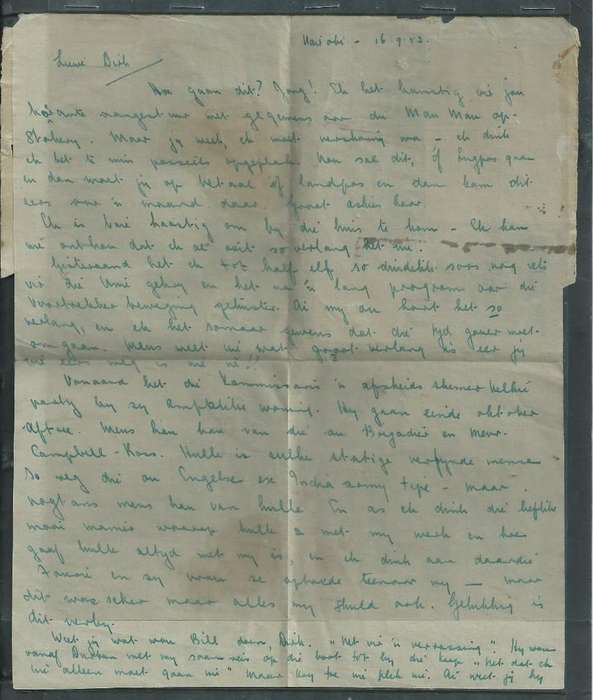 Nairobi - 16.9.52.
Liewe Dirk
Hoe gaan dit? Jong! Ek het haastig vir jou
met gegewens oor die Mau Mau op-
Maar jy weet, ek moet - ek dink
ek het te min posseëls opgeplak. Nou sal dit, óf lugpos gaan
en dan moet jy op betaal óf landpos en dan kom dit
eers oor 'n maand daar
Ek is baie haastig om by die huis te kom - Ek kan
nie onthou dat ek al ooit so verlang het nie.
Gisteraand het ek tot half elf so dondelike soos nog iets
vir die Unie gekry en het na 'n lang program oor die
Voortrekker beweging geluister. Ai my ou hart het so
verlang, en ek het somaar gewens dat die tyd gouer moet
om gaan. Mens weet nie wat groot verlang is eer jy
nie eers weg is nie nê!!
Vanaand het die Kommissaris 'n afskeids skemer kelkie
party by sy amptelike woning. Hy gaan einde Oktober
aftree. Mens kan hou van die ou Brigadier en Mevr.
Campbell-Ross. Hulle is sulke statige verfynde mense
So reg die ou Engelse ex India army tipe - maar
nogtans mens hou van hulle En as ek dink die lieflike
mooi manier waarop hulle met my werk en hoe
gaaf hulle altyd met my is, en ek dink aan daardie
en sy vrou se optrede teenoor my - maar
dit was seker maar alles my skuld ook. Gelukkig is
dit verby.
Weet jy wat wou Bill doen, Dirk. "Net vir 'n verrassing". Hy wou
vanaf Durban met my saam reis op die boot tot by die Kaap "Net dat ek
nie alleen moet gaan nie" Maar kry toe nie plek nie. Ai weet jy hy